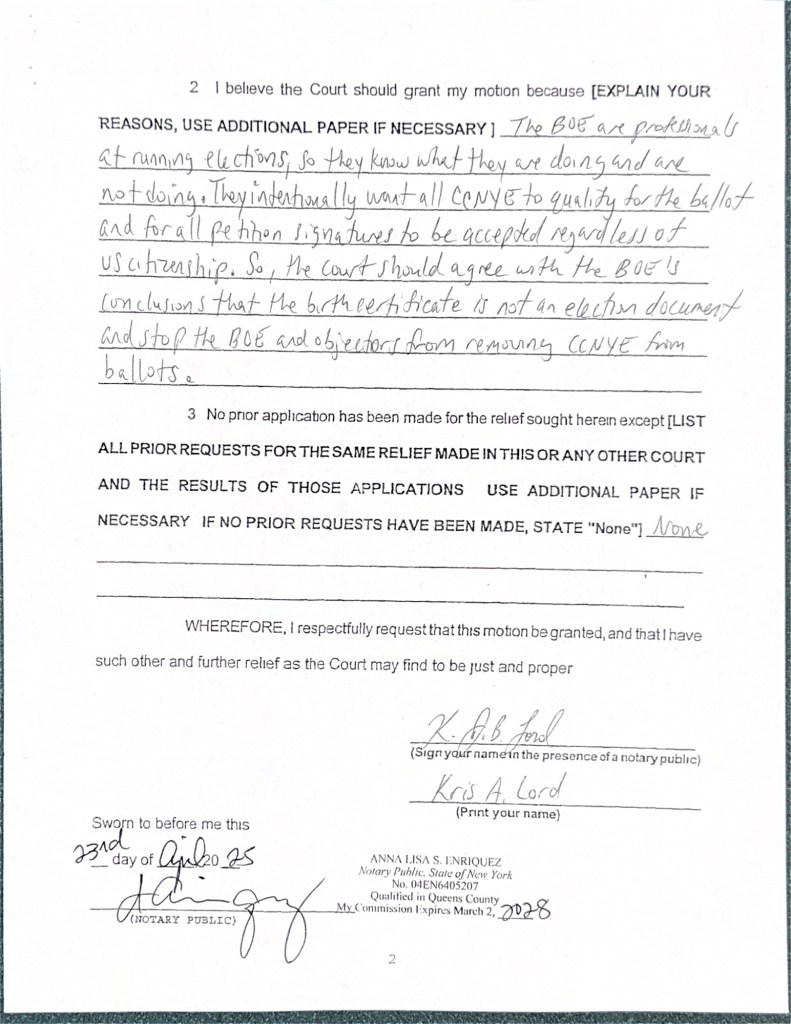 2 I believe the Court should grant my motion because [EXPLAIN YOUR
REASONS, USE ADDITIONAL PAPER IF NECESSARY] The BOE are professionals
at running elections, so they know what they are doing and are
not doing. They intentionally want all CCNYE to qualify for the ballot
and for all petition signatures to be accepted regardless of
US citizenship. So, the court should agree with the BOE's
conclusions that the birth certificate is not an election document
and stop the BOE and objectors from removing CCNYE from
ballots.
3 No prior application has been made for the relief sought herein except [LIST
ALL PRIOR REQUESTS FOR THE SAME RELIEF MADE IN THIS OR ANY OTHER COURT
AND THE RESULTS OF THOSE APPLICATIONS USE ADDITIONAL PAPER IF
NECESSARY IF NO PRIOR REQUESTS HAVE BEEN MADE, STATE "None"] None
WHEREFORE, I respectfully request that this motion be granted, and that I have
such other and further relief as the Court may find to be just and proper
K. A.B. Lord
(Sign your name in the presence of a notary public)
Kris A. Lord
(Print your name)
Sworn to before me this
23rd day of April 20 25
(NOTARY PUBLIC)
ANNA LISA S. ENRIQUEZ
Notary Public, State of New York
No. 04EN6405207
Qualified in Queens County
My Commission Expires March 2, 2028
2